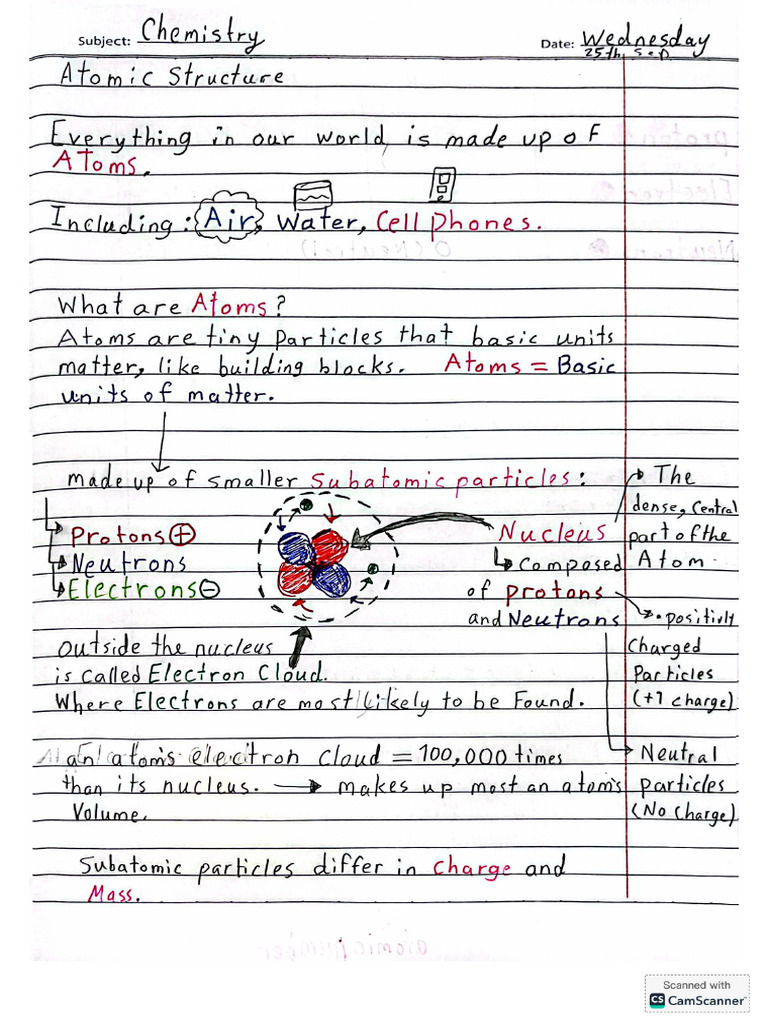 Subject: Chemistry
Date: Wednesday
25th, Sep
Atomic Structure
Everything in our world, is made up of
Atoms.
Including: Air, Water, Cell phones.
What are Atoms?
Atoms are tiny particles that basic units
matter, like building blocks. Atoms = Basic
units of matter.
made up of smaller Subatomic particles:
Protons +
Neutrons
Electrons -
Nucleus
Composed
of protons
and Neutrons
The
dense, central
part of the
Atom.
positivly
Charged
Particles
(+1 charge)
Neutral
particles
(No charge)
outside the nucleus
is called Electron Cloud.
Where Electrons are most likely to be Found.
an atom's electron cloud = 100,000 times
than its nucleus. → makes up most an atom's
Volume.
Subatomic particles differ in Charge and
Mass.
Scanned with
CS CamScanner